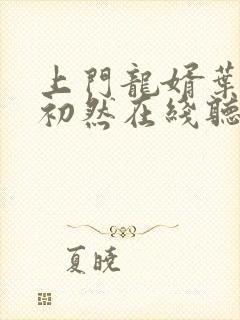 上門龍婿葉
初然在綫聽
夏曉